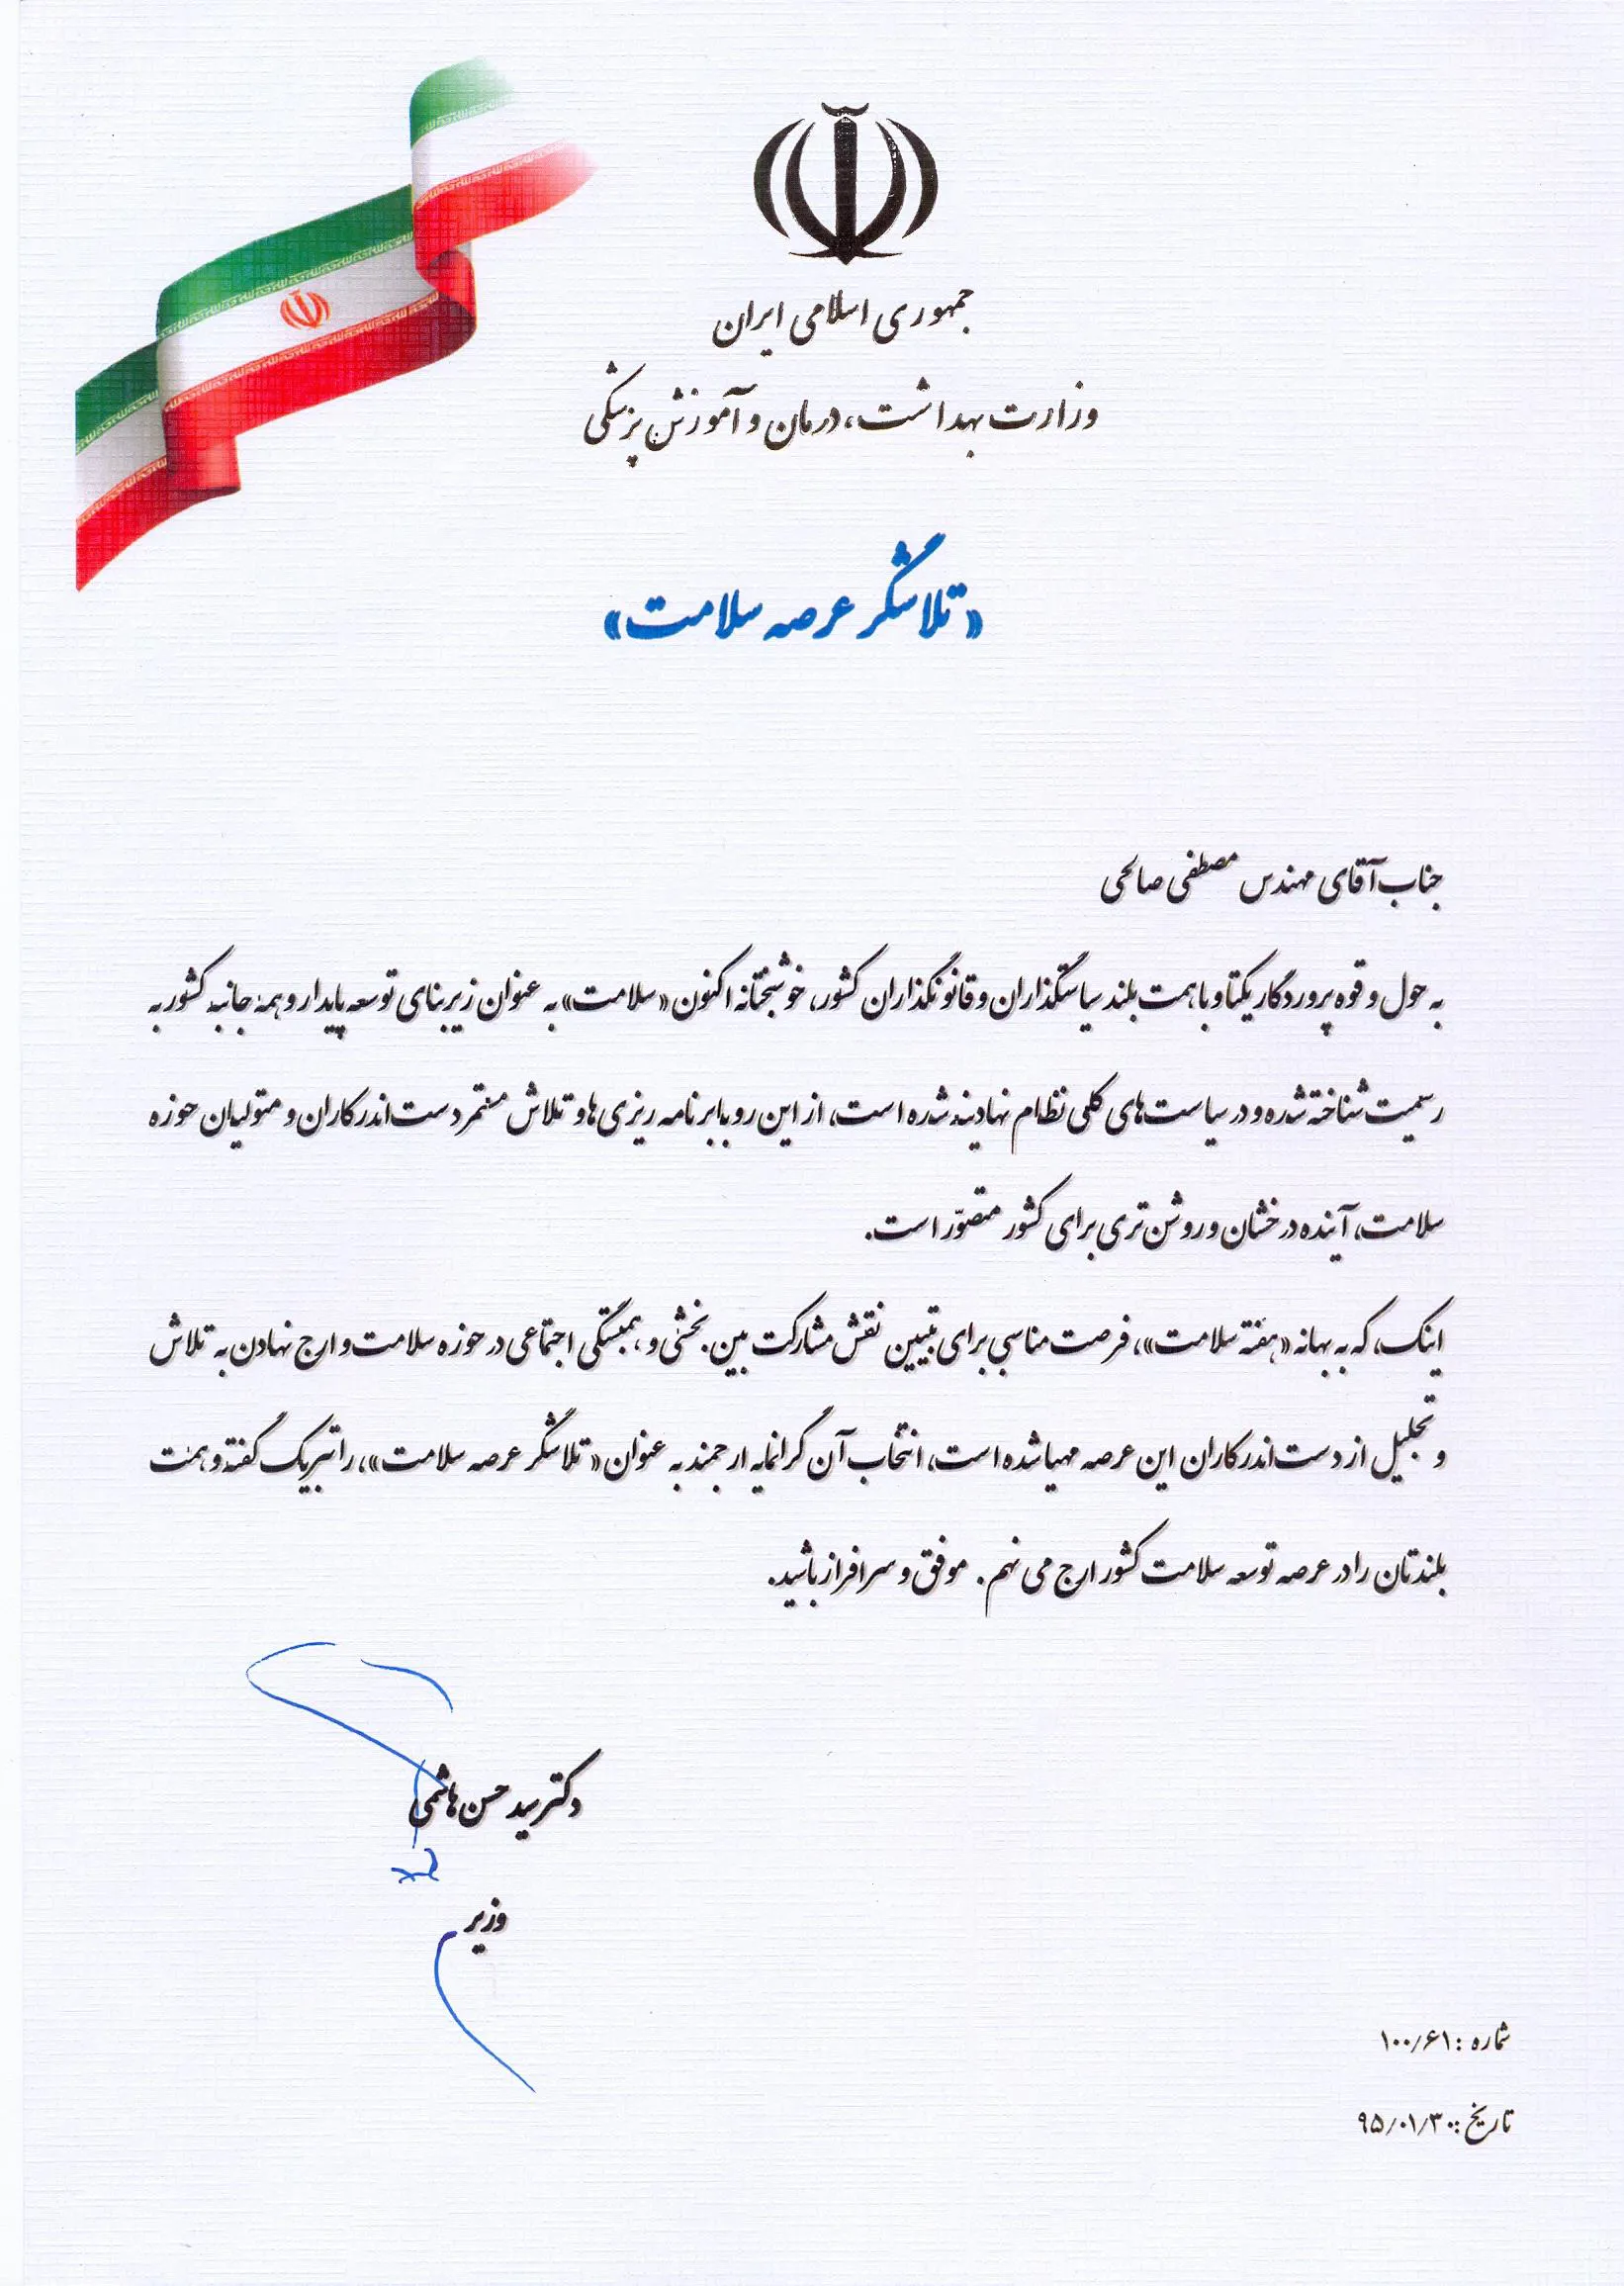 جمهوری اسلامی ایران
وزارت بهداشت، درمان و آموزش پزشکی
«تلاشگر عرصه سلامت»
جناب آقای مهندس مصطفی صالحی
به حول و قوه پروردگار یکتا و با همت بلند سیاستگذاران و قانونگذاران کشور، خوشبختانه اکنون «سلامت» به عنوان زیربنای توسعه پایدار و همه جانبه کشور به
رسمیت شناخته شده و در سیاست‌های کلی نظام نهادینه شده است، از این رو با برنامه ریزی ها و تلاش مستمر دست اندرکاران و متولیان حوزه
سلامت، آینده درخشان و روشن تری برای کشور متصوّر است.
اینک، که به بهانه «هفته سلامت»، فرصت مناسبی برای تبیین نقش مشارکت بین بخشی و همبستگی اجتماعی در حوزه سلامت و ارج نهادن به تلاش
و تجلیل از دست اندرکاران این عرصه مهیا شده است، انتخاب آن گرانمایه ارجمند به عنوان «تلاشگر عرصه سلامت»، را تبریک گفته و همت
بلندتان را در عرصه توسعه سلامت کشور ارج می نهم. موفق و سرافراز باشید.
دکتر سید حسن هاشمی
وزیر
شماره : ۱۰۰/۶۱
تاریخ : ۹۵/۰۱/۳۰